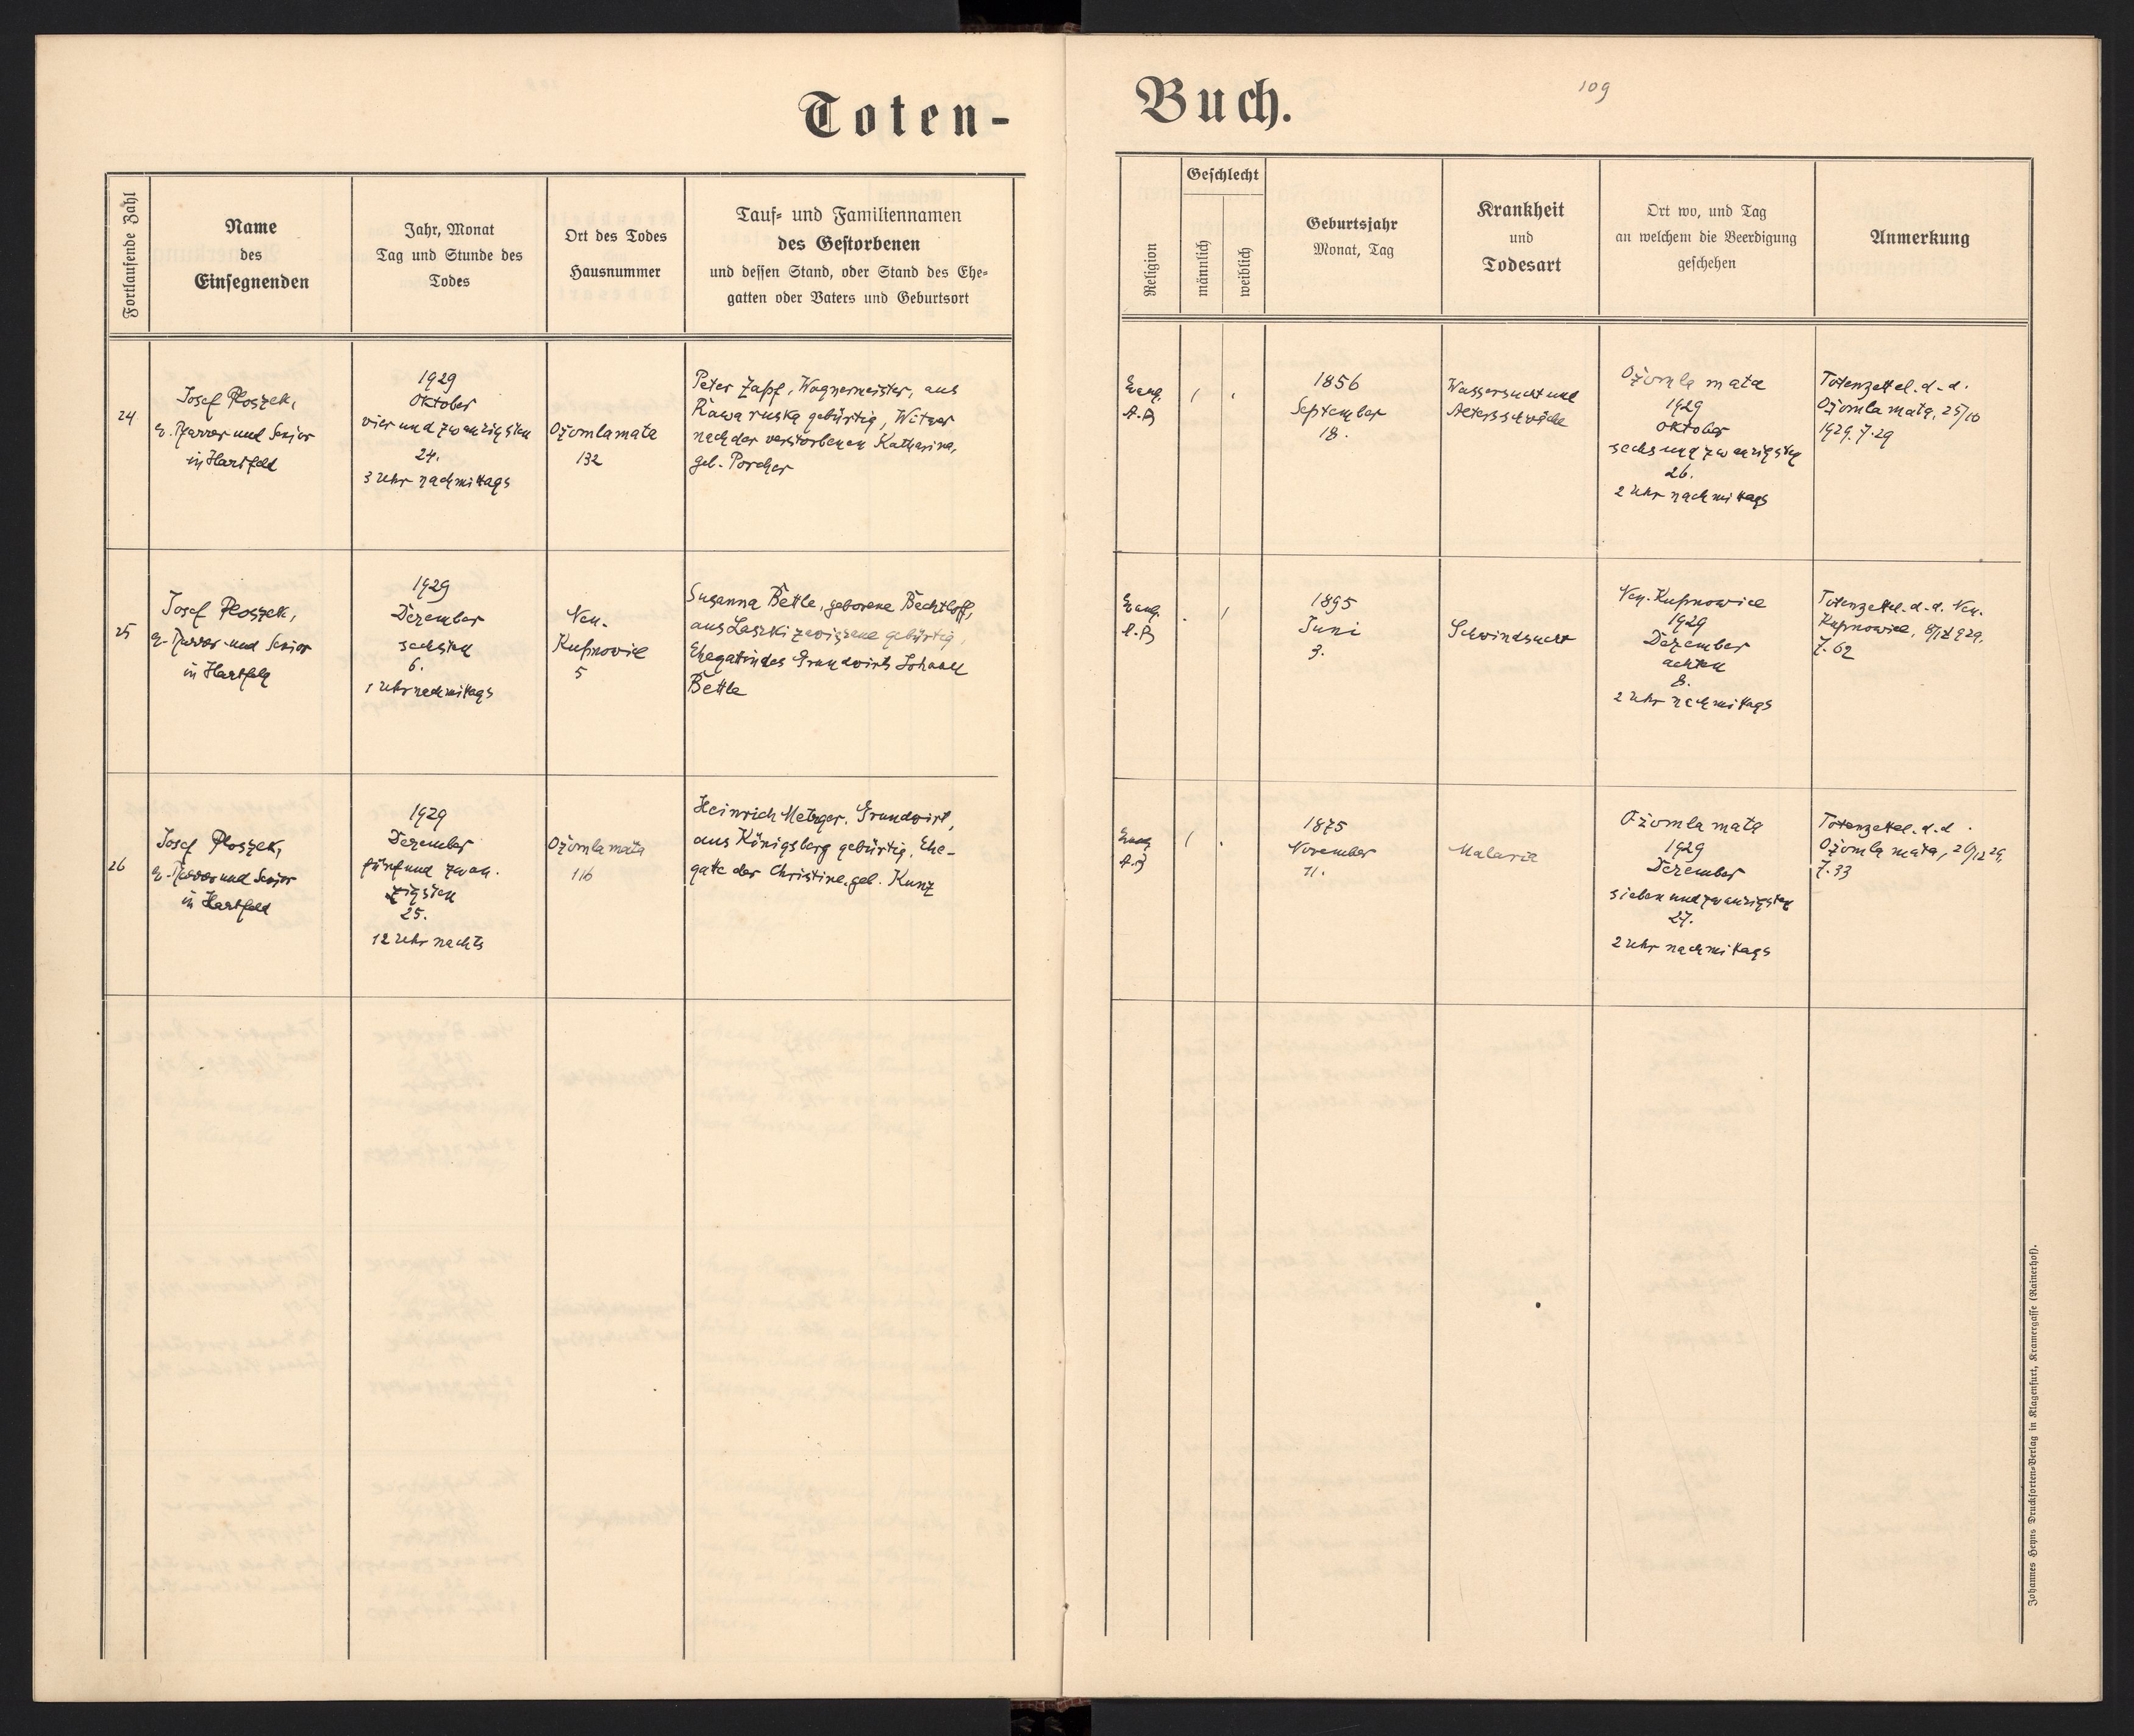 Toten-
Buch.
109
Fortlaufende Zahl
Name
des
Einsegnenden
Jahr, Monat
Tag und Stunde des
Todes
Ort des Todes
Hausnummer
Tauf- und Familiennamen
des Gestorbenen
und dessen Stand, oder Stand des Ehe-
gatten oder Vaters und Geburtsort
Religion
Geschlecht
männlich
weiblich
Geburtsjahr
Monat, Tag
Krankheit
und
Todesart
Ort wo, und Tag
an welchem die Beerdigung
geschehen
Anmerkung
24
Josef Ploszek,
ev. Pfarrer und Senior
in Hartfeld
1929
Oktober
vier und zwanzigsten
24.
3 Uhr nachmittags
Ożomla mała
132
Peter Zapf, Wagnermeister, aus
Rawa ruska gebürtig, Witwer
nach der verstorbenen Katharina,
geb. Porcher
Evang.
A.B
1
.
1856
September
18.
Wassersucht und
Altersschwäche
Ożomla mała
1929
Oktober
sechs und zwanzigsten
26.
2 Uhr nachmittags
Totenzettel. d. d.
Ożomla mała, 25/10
1929. Z. 29
25
Josef Ploszek,
ev. Pfarrer und Senior
in Hartfeld
1929
Dezember
sechsten
6.
1 Uhr nachmittags
Neu-
Kupnowice
5
Susanna Bettle, geborene Bechtloff,
aus Laszki zawiązane gebürtig,
Ehegattin des Grundwirts Johann
Bettle
Evang.
A.B
.
1
1895
Juni
3.
Schwindsucht
Neu-Kupnowice
1929
Dezember
achten
8.
2 Uhr nachmittags
Totenzettel. d. d. Neu-
Kupnowice, 8/12 929.
Z. 62
26
Josef Ploszek,
ev. Pfarrer und Senior
in Hartfeld
1929
Dezember
fünf und zwan-
zigsten
25.
12 Uhr nachts
Ożomla mała
116
Heinrich Metzger, Grundwirt,
aus Königsberg gebürtig, Ehe-
gatte der Christine, geb. Kunz
Evang
A.B
1
.
1875
November
11.
Malaria
Ożomla mała
1929
Dezember
sieben und zwanzigsten
27.
2 Uhr nachmittags
Totenzettel. d. d.
Ożomla mała, 26/12 29,
Z. 33
Johannes Heyns Drucksorten-Verlag in Klagenfurt, Kramergasse (Rainerhof).